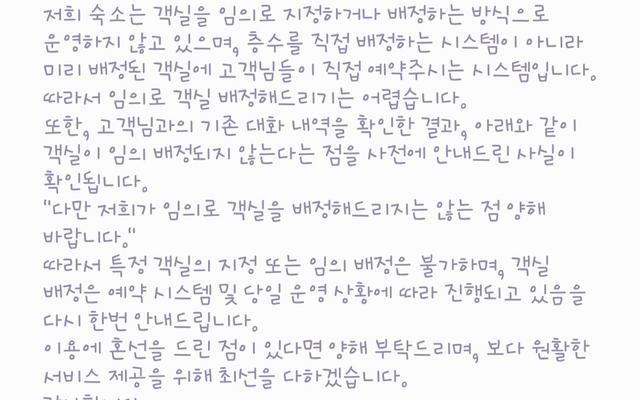 저희 숙소는 객실을 임의로 지정하거나 배정하는 방식으로
운영하지 않고 있으며, 층수를 직접 배정하는 시스템이 아니라
미리 배정된 객실에 고객님들이 직접 예약주시는 시스템입니다.
따라서 임의로 객실 배정해드리기는 어렵습니다.
또한, 고객님과의 기존 대화 내역을 확인한 결과, 아래와 같이
객실이 임의 배정되지 않는다는 점을 사전에 안내드린 사실이
확인됩니다.
"다만 저희가 임의로 객실을 배정해드리지는 않는 점 양해
바랍니다."
따라서 특정 객실의 지정 또는 임의 배정은 불가하며, 객실
배정은 예약 시스템 및 당일 운영 상황에 따라 진행되고 있음을
다시 한번 안내드립니다.
이용에 혼선을 드린 점이 있다면 양해 부탁드리며, 보다 원활한
서비스 제공을 위해 최선을 다하겠습니다.